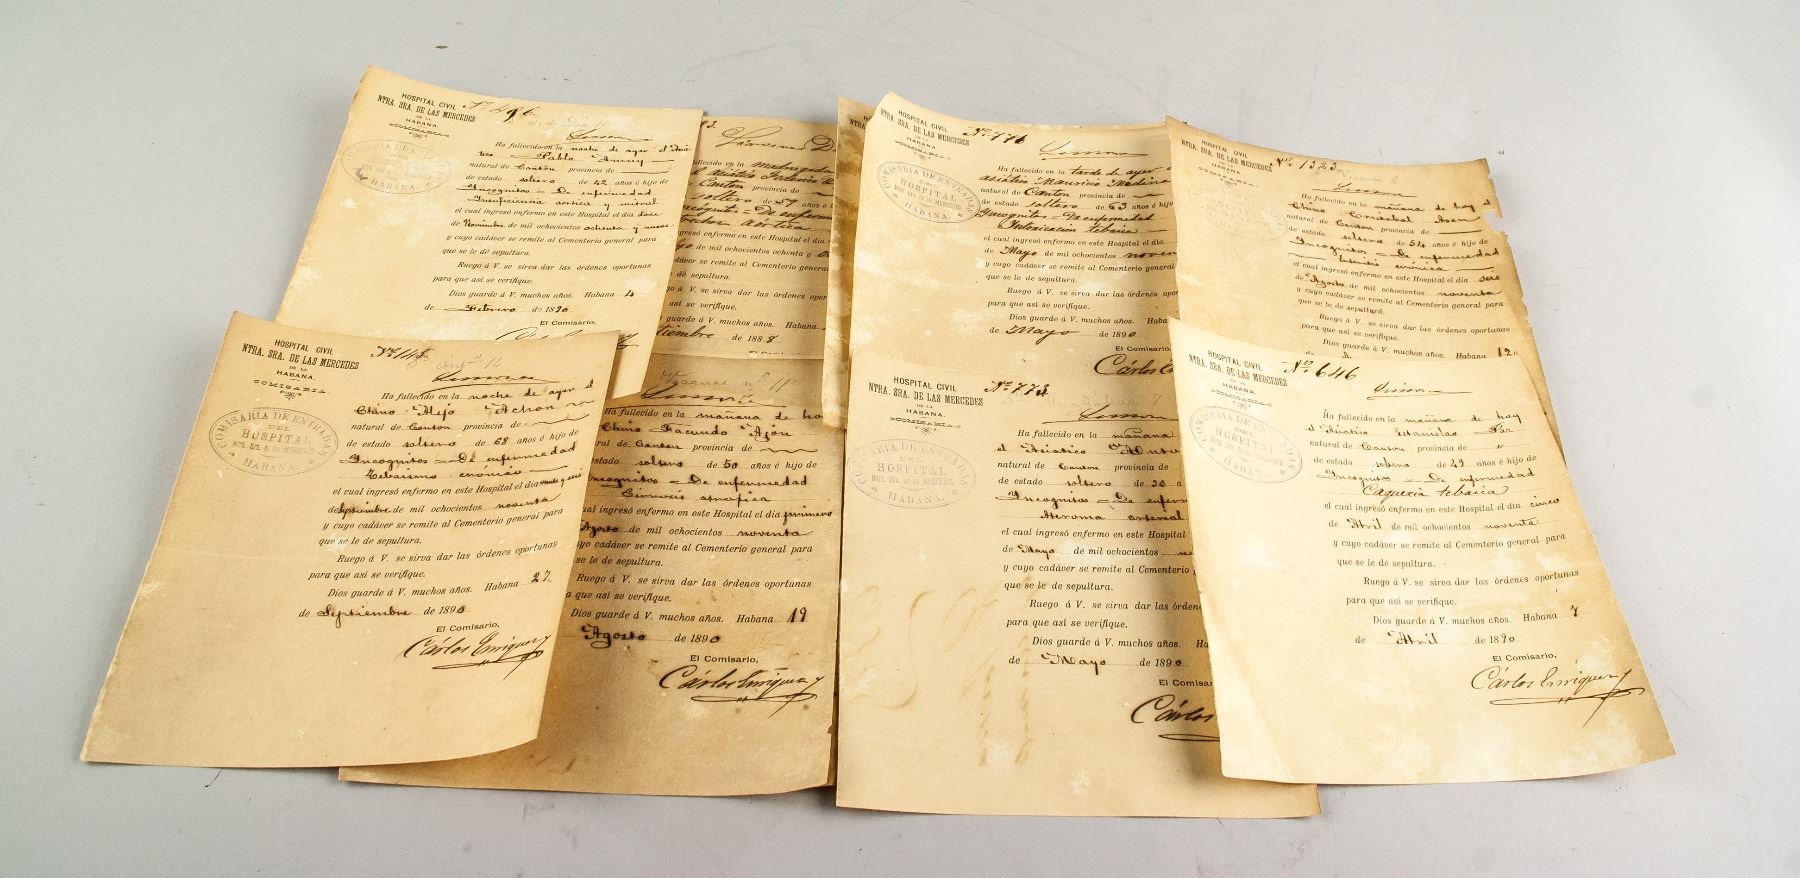 HOSPITAL CIVIL
NTRA. SRA. DE LAS MERCEDES
DE LA
HABANA.
COMISARIA
No. 496
Ha fallecido en la noche de ayer el Asiá-
tico = Pablo
natural de Canton provincia de
de estado soltero de 42 años é hijo de
Incognitos = De enfermedad
Insuficiencia aortica y mitral
el cual ingresó enfermo en este Hospital el dia doce
de Noviembre de mil ochocientos ochenta y nueve
y cuyo cadáver se remite al Cementerio general para
que se le de sepultura.
Ruego á V. se sirva dar las órdenes oportunas
para que asi se verifique.
Dios guarde á V. muchos años. Habana 4
de Febrero de 1890
El Comisario,
Ha fallecido en la madrugada
Canton provincia de
soltero de 57 años é
= De enfermedad
aórtica
de mil ochocientos ochenta y
cadáver se remite al Cementerio general
á V. se sirva dar las órdenes
asi se verifique.
guarde á V. muchos años. Habana
de 1888
HOSPITAL CIVIL
NTRA. SRA. DE LAS MERCEDES
DE LA
HABANA.
COMISARIA
COMISARIA DE ENTRADAS
DEL
HOSPITAL
HABANA.
No. 771
Ha fallecido en la tarde de ayer
asiático Mauricio Medina
natural de Canton provincia de
de estado soltero de 63 años é hijo
Incognitos = De enfermedad
Intoxicación tebaica
el cual ingresó enfermo en este Hospital el dia
de Mayo de mil ochocientos
y cuyo cadáver se remite al Cementerio general
que se le de sepultura.
Ruego á V. se sirva dar las órdenes
para que asi se verifique.
Dios guarde á V. muchos años. Habana
de Mayo de 1890
El Comisario,
Cárlos
HOSPITAL CIVIL
NTRA. SRA. DE LAS MERCEDES
DE LA
HABANA.
COMISARIA
No. 1323
Ha fallecido en la mañana de hoy el
Chino Cristobal
natural de Canton provincia de
de estado soltero de 54 años é hijo de
Incognitos = De enfermedad
Enteritis crónica
el cual ingresó enfermo en este Hospital el dia seis
de Agosto de mil ochocientos noventa
y cuyo cadáver se remite al Cementerio general para
que se le de sepultura.
Ruego á V. se sirva dar las órdenes oportunas
para que asi se verifique.
Dios guarde á V. muchos años. Habana 12
HOSPITAL CIVIL
NTRA. SRA. DE LAS MERCEDES
DE LA
HABANA.
COMISARIA
COMISARIA DE ENTRADAS
DEL
HOSPITAL
NTRA. SRA. DE LAS MERCEDES
HABANA.
Ha fallecido en la noche de ayer el
Chino Alejo Achon
natural de Canton provincia de
de estado soltero de 68 años é hijo de
Incognitos = De enfermedad
Tebaismo crónico
el cual ingresó enfermo en este Hospital el dia
de Septiembre de mil ochocientos noventa
y cuyo cadáver se remite al Cementerio general para
que se le de sepultura.
Ruego á V. se sirva dar las órdenes oportunas
para que asi se verifique.
Dios guarde á V. muchos años. Habana 27
de Septiembre de 1890
El Comisario,
Cárlos Enriquez
Ha fallecido en la mañana de hoy
Chino Facundo Ajón
natural de Canton provincia de
estado soltero de 50 años é hijo de
Incognitos = De enfermedad
Cirrosis atrofica
el cual ingresó enfermo en este Hospital el dia primero
Agosto de mil ochocientos noventa
cuyo cadáver se remite al Cementerio general para
se le de sepultura.
Ruego á V. se sirva dar las órdenes oportunas
para que asi se verifique.
Dios guarde á V. muchos años. Habana 19
Agosto de 1890
El Comisario,
Cárlos Enriquez
HOSPITAL CIVIL
NTRA. SRA. DE LAS MERCEDES
DE LA
HABANA.
COMISARIA
COMISARIA DE ENTRADAS
DEL
HOSPITAL
NTRA. SRA. DE LAS MERCEDES
HABANA.
No. 773
Ha fallecido en la mañana
el Asiatico
natural de Canton provincia de
de estado soltero de
Incognitos = De
Ateroma arterial
el cual ingresó enfermo en este Hospital
de Mayo de mil ochocientos
y cuyo cadáver se remite al Cementerio
que se le de sepultura.
Ruego á V. se sirva dar las órdenes
para que asi se verifique.
Dios guarde á V. muchos años.
de Mayo de 1890
El Comisario,
Cárlos
HOSPITAL CIVIL
NTRA. SRA. DE LAS MERCEDES
DE LA
HABANA.
COMISARIA
COMISARIA DE ENTRADAS
DEL
HOSPITAL
NTRA. SRA. DE LAS MERCEDES
HABANA.
No. 646
Ha fallecido en la mañana de hoy
el Asiático Estanislao
natural de Canton provincia de "
de estado soltero de 49 años é hijo de
Incognitos = De enfermedad
Caquexia tebaica
el cual ingresó enfermo en este Hospital el dia cinco
de Abril de mil ochocientos noventa
y cuyo cadáver se remite al Cementerio general para
que se le de sepultura.
Ruego á V. se sirva dar las órdenes oportunas
para que asi se verifique.
Dios guarde á V. muchos años. Habana 7
de Abril de 1890
El Comisario,
Cárlos Enriquez